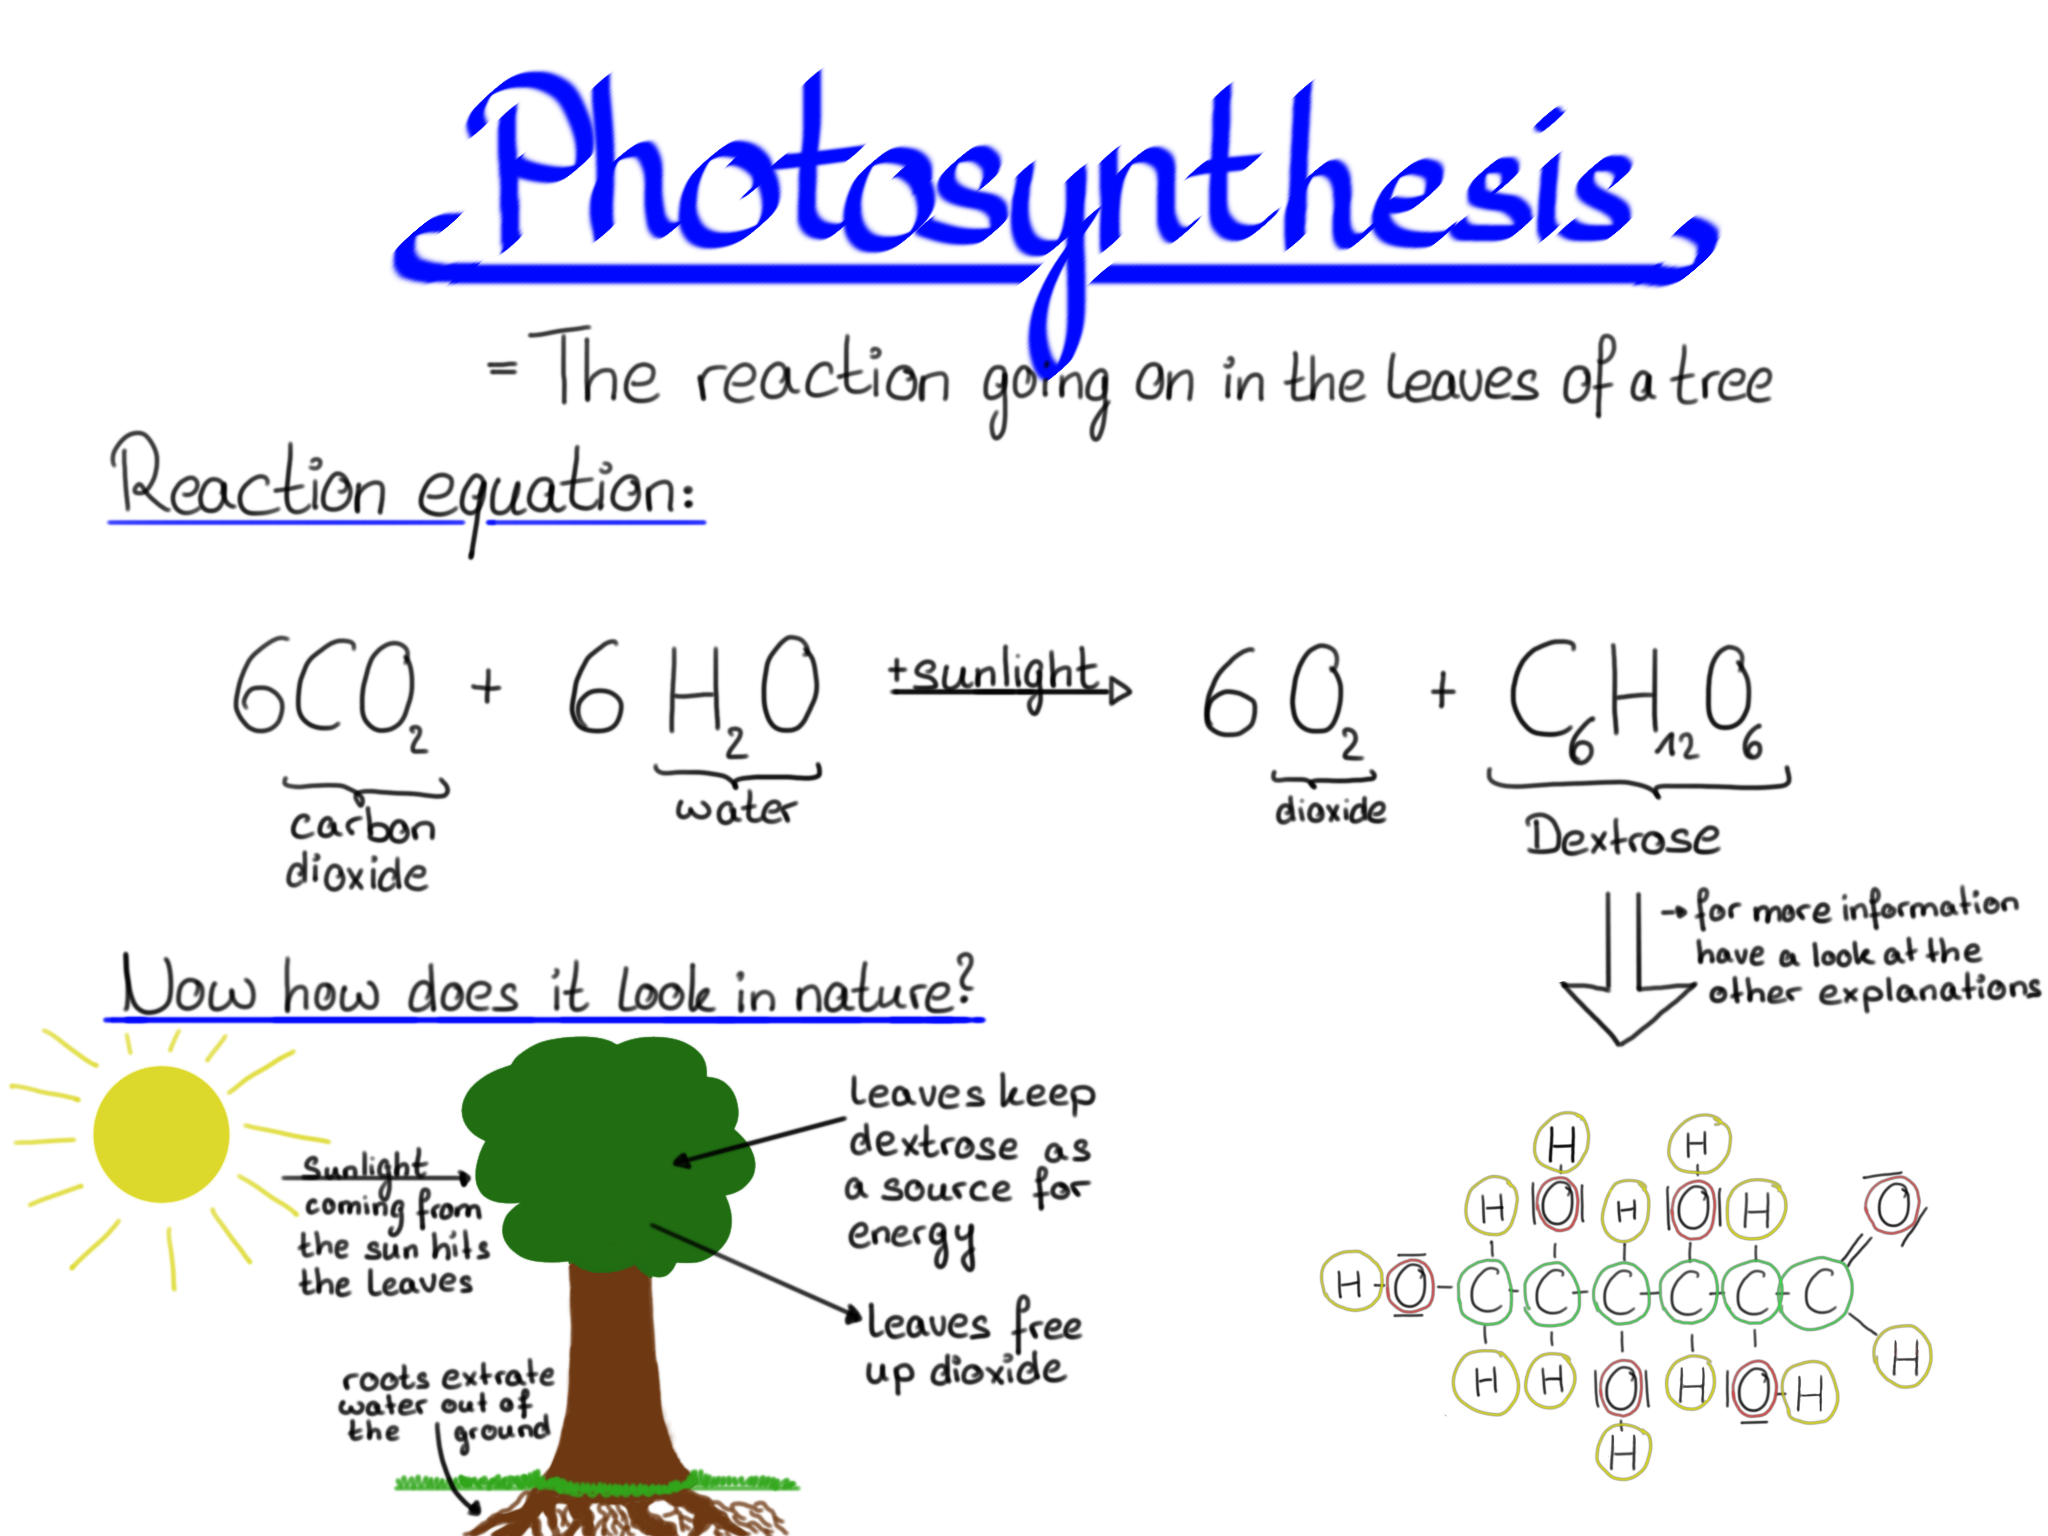 Photosynthesis
= The reaction going on in the leaves of a tree
Reaction equation:
6CO₂ + 6 H₂O +sunlight → 6 O₂ + C₆H₁₂O₆
carbon
dioxide
water
dioxide
Dextrose
→ for more information
have a look at the
other explanations
Now how does it look in nature?
Sunlight
coming from
the sun hits
the leaves
leaves keep
dextrose as
a source for
energy
leaves free
up dioxide
roots extrate
water out of
the ground
H H
H O H O H O
H - O - C - C - C - C - C - C
H H O H O - H H
H